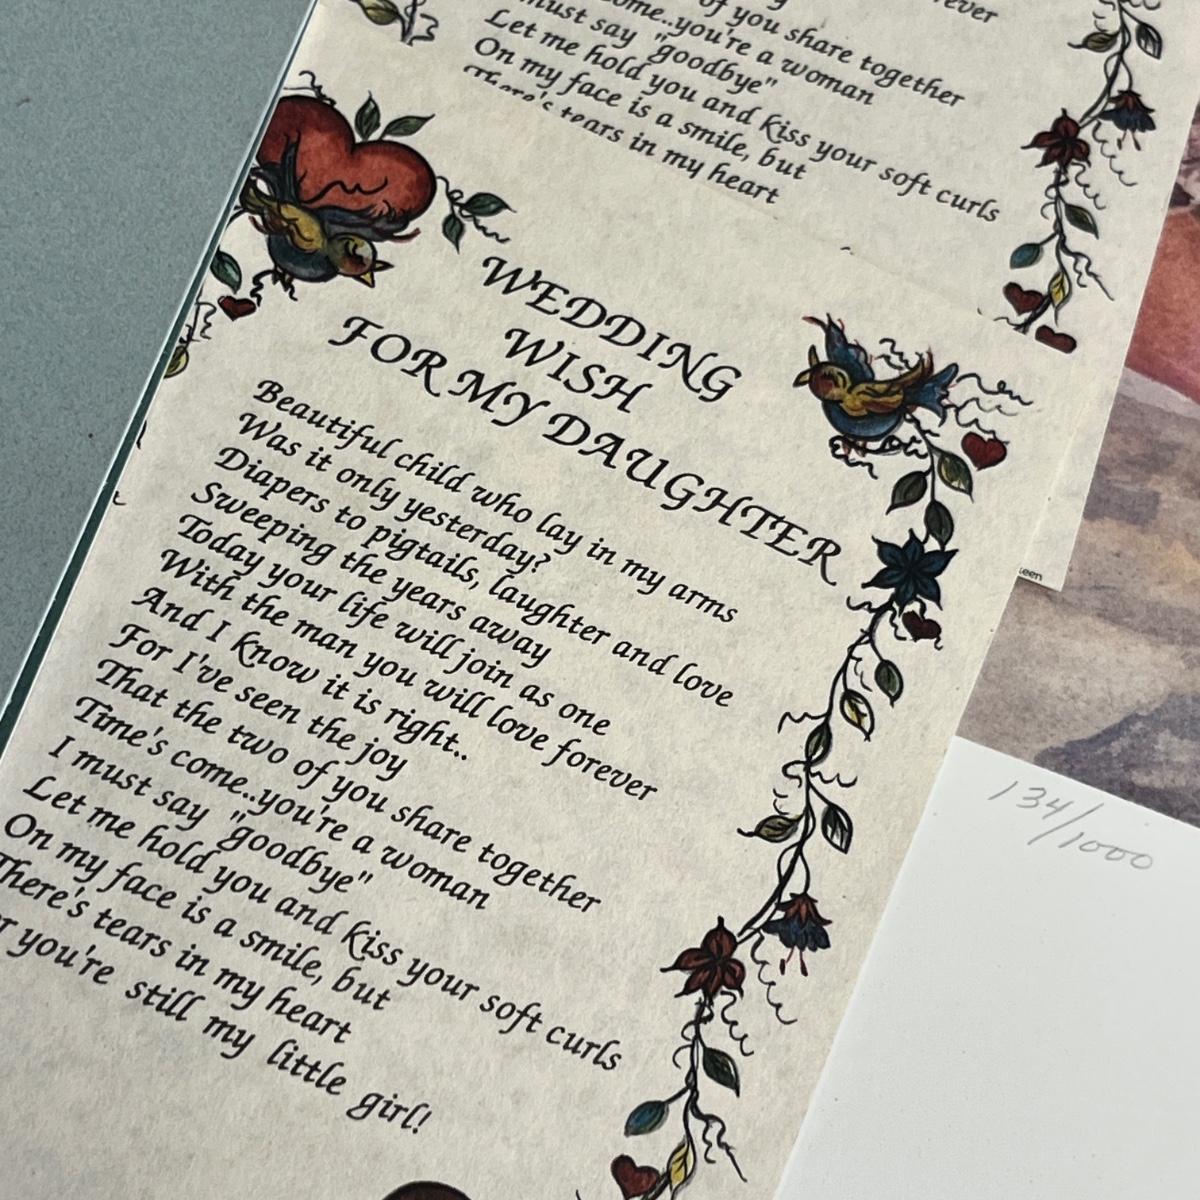 rever
of you share together
ome..you're a woman
must say "goodbye"
Let me hold you and kiss your soft curls
On my face is a smile, but
There's tears in my heart
WEDDING
WISH
FOR MY DAUGHTER
Beautiful child who lay in my arms
Was it only yesterday?
Diapers to pigtails, laughter and love
Sweeping the years away
Today your life will join as one
With the man you will love forever
And I know it is right..
For I've seen the joy
That the two of you share together
Time's come..you're a woman
I must say "goodbye"
Let me hold you and kiss your soft curls
On my face is a smile, but
There's tears in my heart
r you're still my little girl!
keen
134/1000